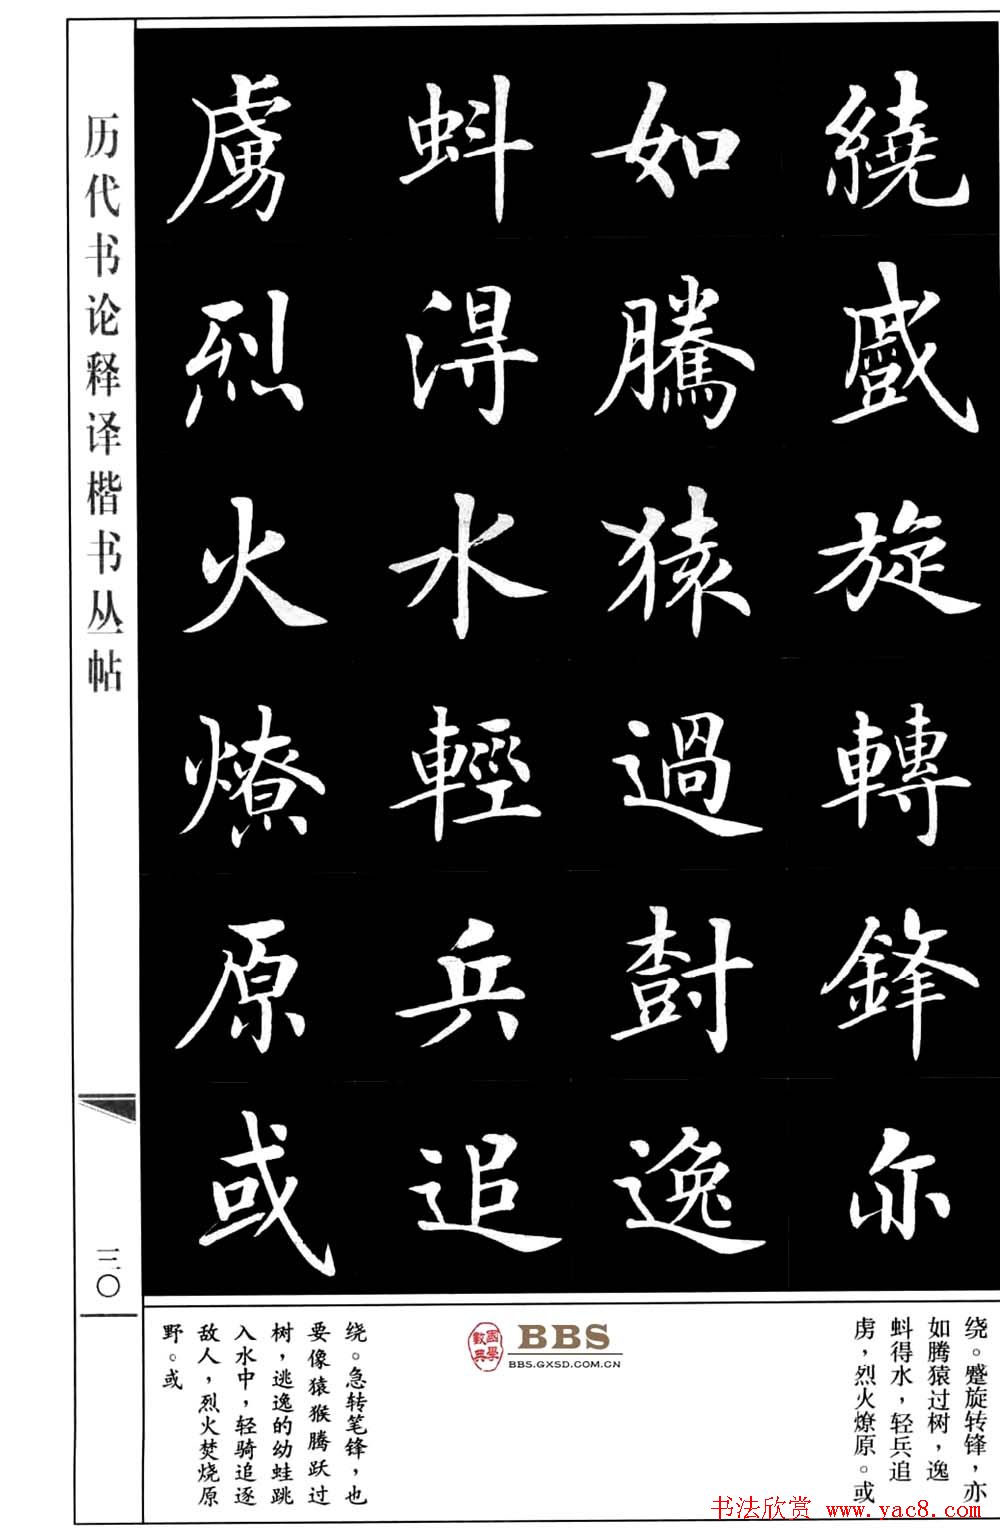 历代书论释译楷书丛帖
三〇
繞蹙旋轉鋒亦
如騰猿過樹逸
蚪得水輕兵追
虜烈火燎原或
绕。蹙旋转锋，亦
如腾猿过树，逸
蚪得水，轻兵追
虏，烈火燎原。或
BBS
BBS.GXSD.COM.CN
國學數典
绕。急转笔锋，也
要像猿猴腾跃过
树，逃逸的幼蛙跳
入水中，轻骑追逐
敌人，烈火焚烧原
野。或
书法欣赏 www.yac8.com